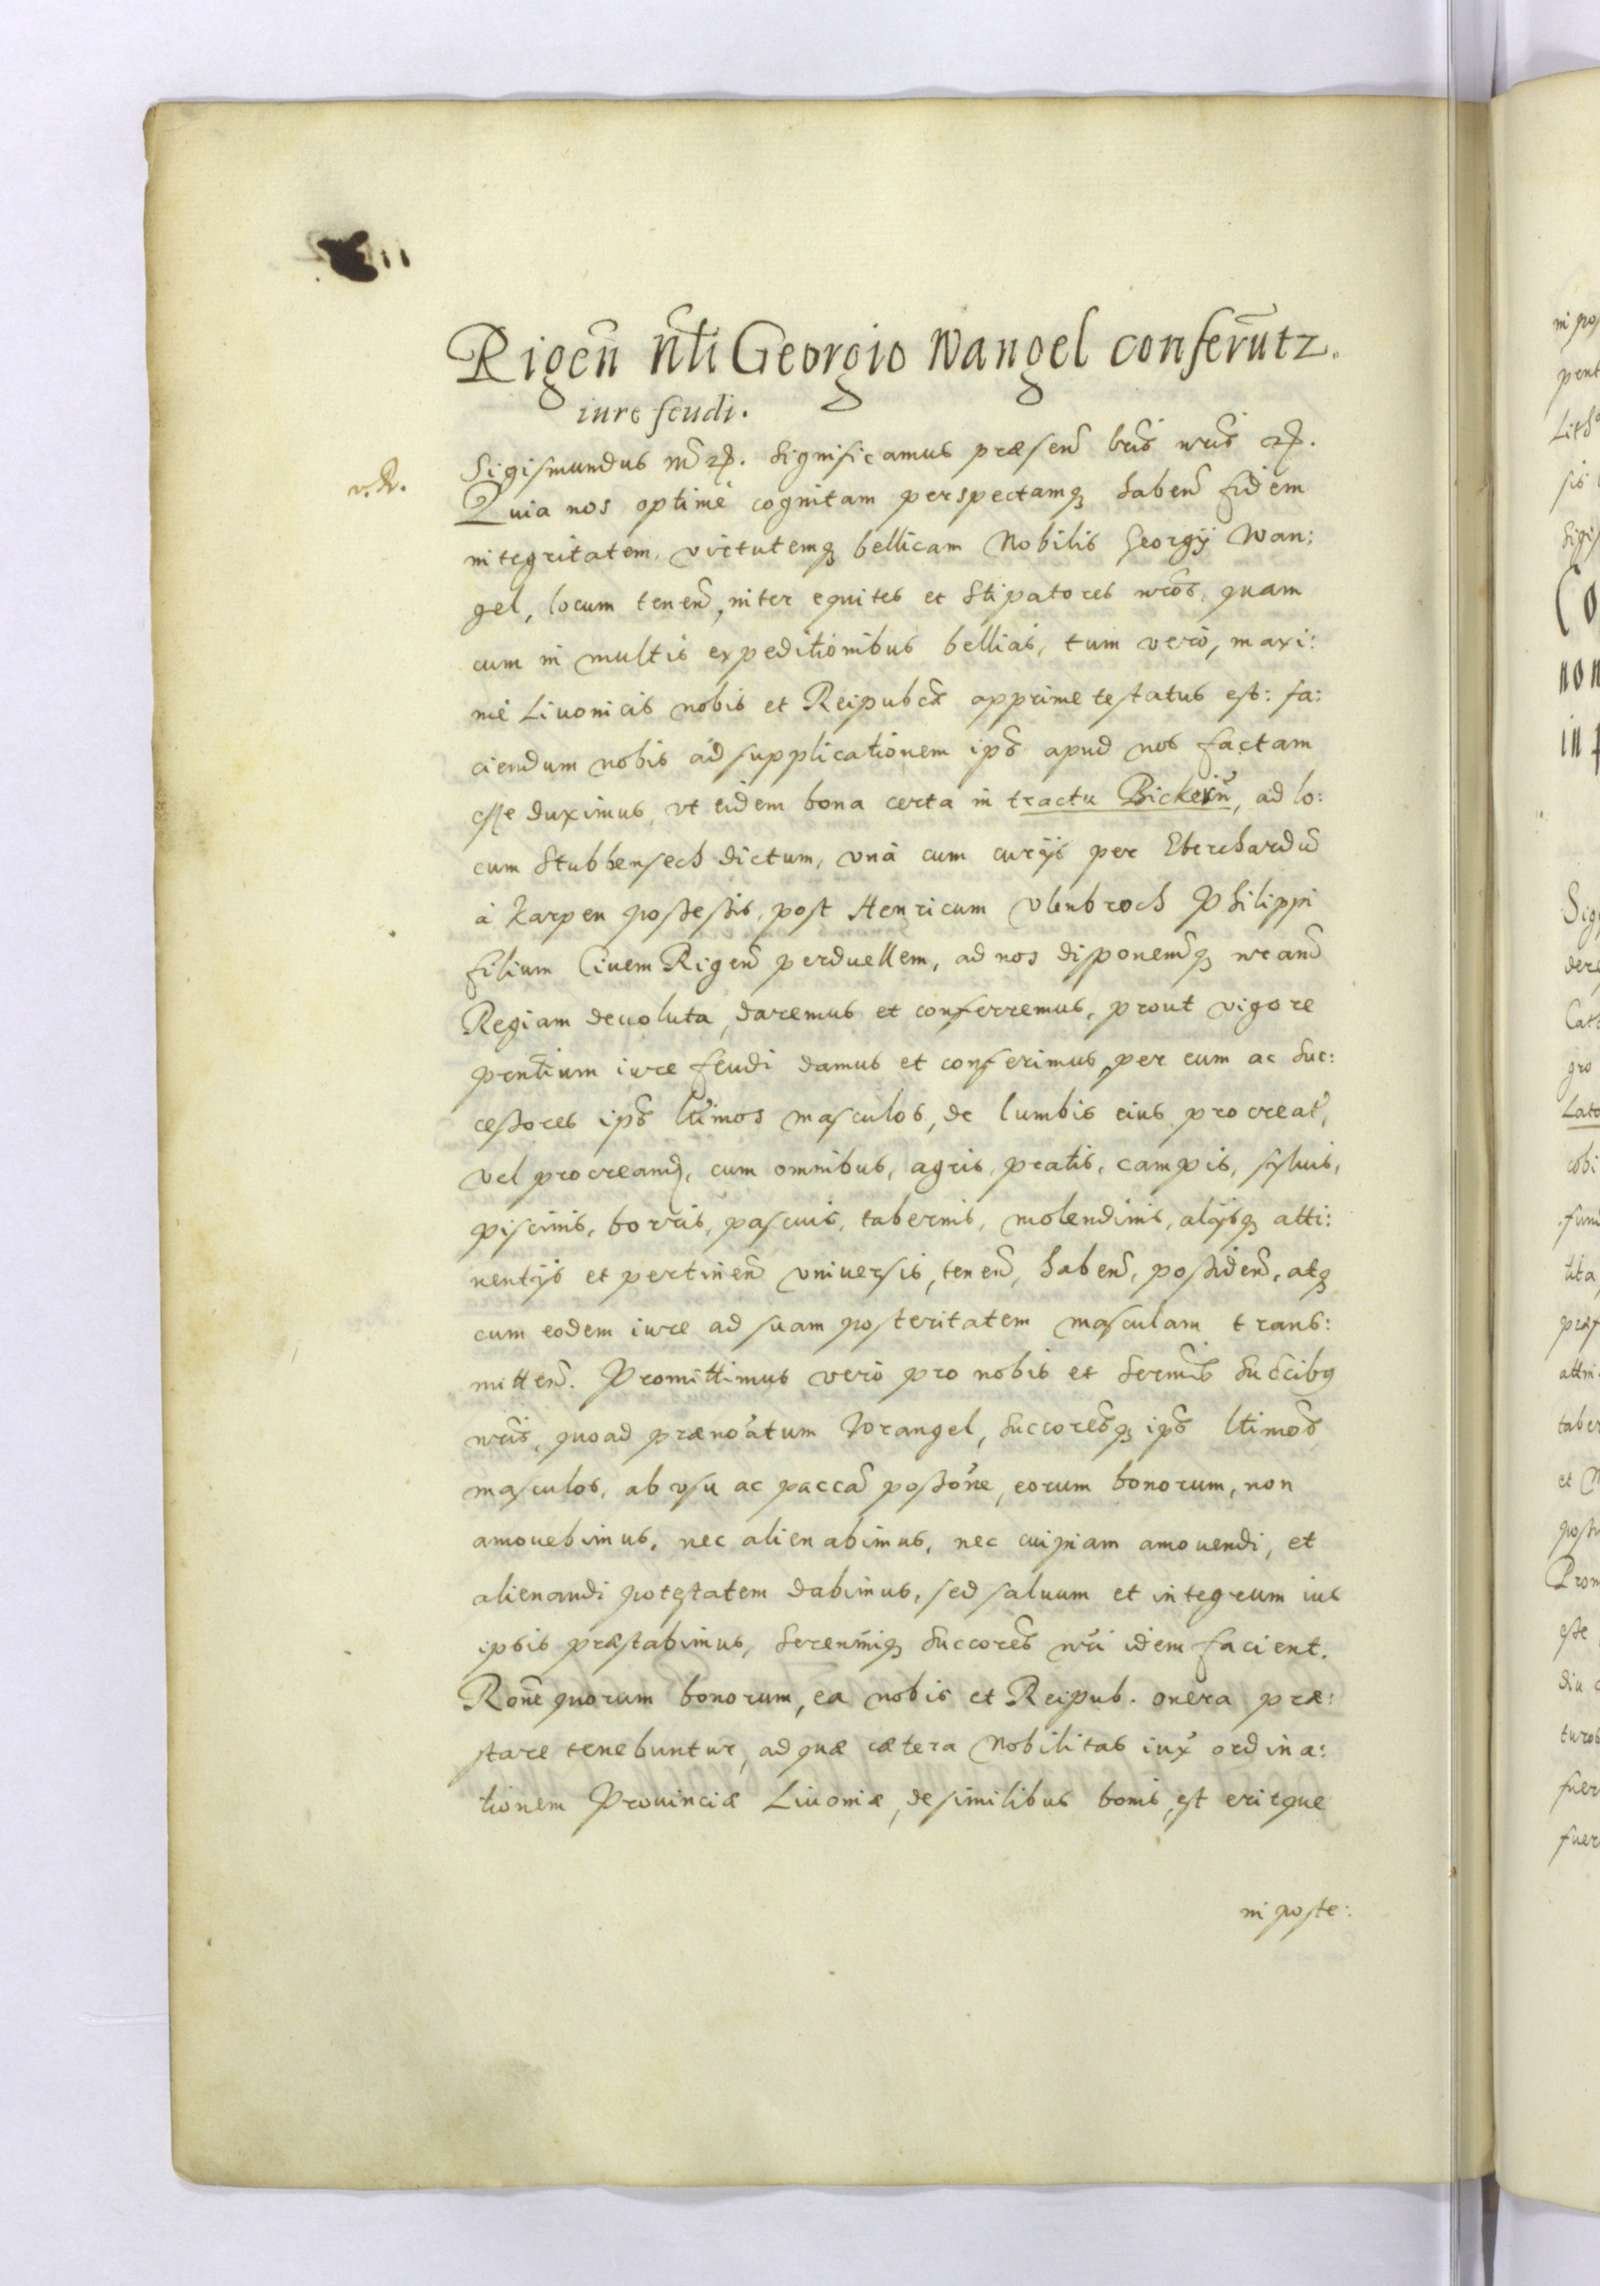 Rigeñ ñtli Georgio Wangel conferũtz.
iure feudi.
Sigismundus
significamus præseñ
v. R.
Quia nos optimè cognitam perspectamq habeñ fidem
integritatem, virtutemq bellicam Nobilis Georgij Wan:
gel, locum teneñ, inter equites et stipatores nr̃os, quam
cum in multis expeditionibus bellicis, tum verò, maxi:
mè Liuonicis nobis et Reipub apprime testatus est: fa:
ciendum nobis ad supplicationem ips̃ apud nos factam
esse duximus, vt eidem bona certa in tractu Bickerñ, ad lo:
cum Stubbensech dictum, vnà cum curijs per Eberchardũ
à Karpen possessis, post Henricum Vlenbroch Philippi
filium Ciuem Rigeñ perduellem, ad nos disponemq nr̃am
Regiam deuoluta, daremus et conferremus, prout vigore
pñtium iure feudi damus et conferimus, per eum ac suc:
cessores ips̃ ltĩmos masculos, de lumbis eius procreat,
vel procreand, cum omnibus, agris, pratis, campis, syluis,
piscinis, borris, pascuis, tabernis, molendinis, alijsq atti:
nentijs et pertineñ vniuersis, teneñ, habeñ, possideñ, atq
cum eodem iure ad suam posteritatem masculam trans:
mitteñ. Promittimus verò pro nobis et
nr̃is, quoad prænotatum Wrangel, succoresq ips̃ ltimos
masculos, ab vsu ac paccã possõne, eorum bonorum, non
amouebimus, nec alienabimus, nec cuipiam amouendi, et
alienandi potestatem dabimus, sed saluum et integrum ius
ipsis præstabimus, serenmiq succores nr̃i idem facient.
Rõne quorum bonorum, ea nobis et Reipub. onera præ:
stare tenebuntur, ad quæ cætera Nobilitas iux̃ ordina:
tionem Prouinciæ Liuoniæ, de similibus bonis, est eritque
in poste: